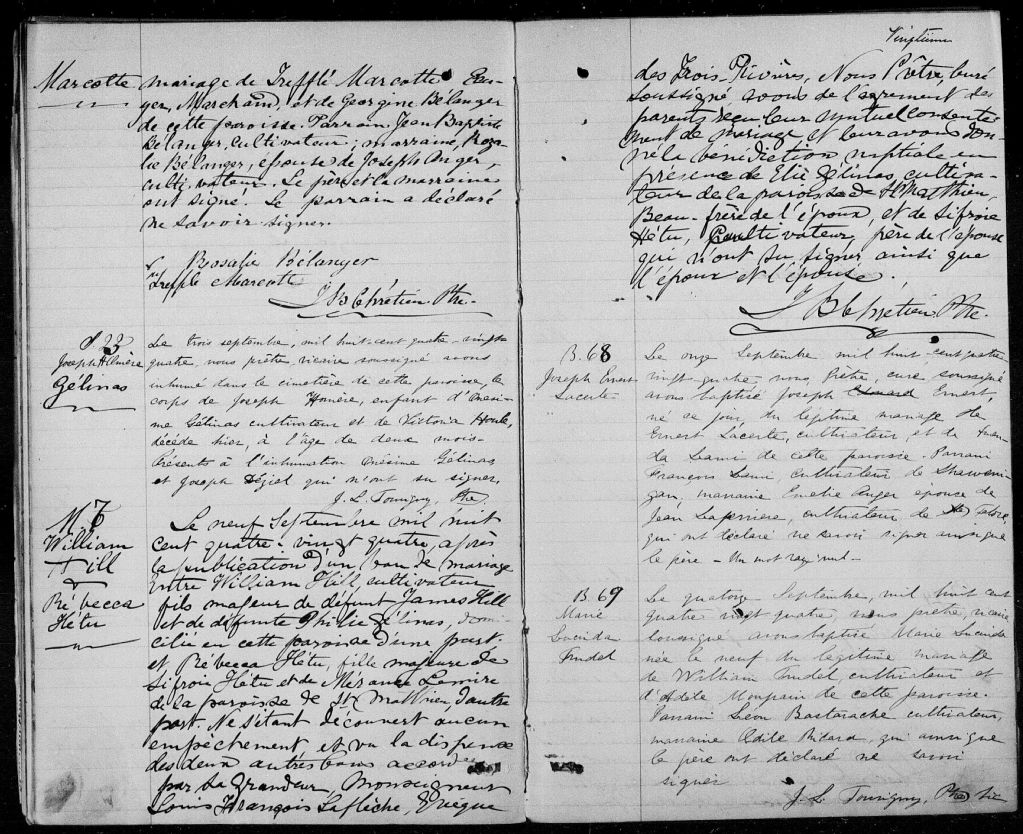 Marcotte
mariage de Trefflé Marcotte
ger, Marchand, et de Georgine Bélanger
de cette paroisse. Parrain Jean Baptiste
Bélanger, cultivateur; marraine, Roza-
lie Bélanger, épouse de Joseph Anger,
cultivateur. Le père et la marraine
ont signé. Le parrain a déclaré
ne savoir signer.
Rosalie Bélanger
Trefflé Marcotte
J B Chrétien Ptre.
S 23
Joseph Honère
Gélinas
Le trois septembre, mil huit-cent quatre-vingt
quatre, nous prêtre vicaire soussigné avons
inhumé dans le cimetière de cette paroisse, le
corps de Joseph Honère, enfant d'Onési-
me Gélinas cultivateur et de Victoria Houle,
décédé hier, à l'âge de deux mois.
Présents à l'inhumation Onésime Gélinas
et Joseph Déziel qui n'ont su signer.
J. L. Tourigny, Ptre
M. 7
William
Hill
&
Rébecca
Hétu
Le neuf Septembre mil huit
cent quatre-vingt quatre, après
la publication d'un ban de mariage
entre William Hill cultivateur
fils majeur de défunt James Hill
et de défunte Philie Gélinas, domi-
cilié en cette paroisse d'une part;
et Rébecca Hétu, fille majeure de
Sifroie Hétu et de Mérance Lamire
de la paroisse de St Matthieu d'autre
part. Ne s'étant découvert aucun
empêchement, et vu la dispense
des deux autres bans accordée
par Sa Grandeur, Monseigneur
Louis François Laflèche, Evêque
Vingtième
des Trois-Rivières, Nous Prêtre, curé
soussigné, avons de l'agrément des
parents reçu leur mutuel consente-
ment de mariage et leur avons don-
né la bénédiction nuptiale en
présence de Elie Gélinas, cultiva-
teur de la paroisse de St Matthieu,
Beau-frère de l'époux, et de Sifroie
Hétu, cultivateur, père de l'épouse
qui n'ont su signer ainsi que
l'époux et l'épouse.
J B Chrétien Ptre.
B. 68
Joseph Ernest
Lacerte
Le onze Septembre mil huit-cent quatre
vingt-quatre nous, Prêtre, curé soussigné
avons baptisé Joseph Ernest,
né ce jour, du légitime mariage de
Ernest Lacerte, cultivateur, et de Aman-
da Lami de cette paroisse. Parrain
François Lami, cultivateur de Shaweni-
gan, marraine Emélie Anger épouse de
Jean Laferrière, cultivateur de
qui ont déclaré ne savoir signer ainsi que
le père - Un mot rayé nul -
B. 69
Marie
Lucinda
Trudel
Le quatorze Septembre, mil huit cent
quatre vingt quatre, nous prêtre, vicaire
soussigné avons baptisé Marie Lucinda
née le neuf du légitime mariage
de William Trudel cultivateur et
d'Adèle Maupain de cette paroisse.
Parrain Léon Bastarache cultivateur,
marraine Odile Ricard, qui ainsi que
le père ont déclaré ne savoir
signer
J. L. Tourigny, Ptre Vic